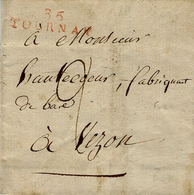 86
TOURNAY
à Monsieur
hautecoeur, fabriquant
de bas
à Vezon